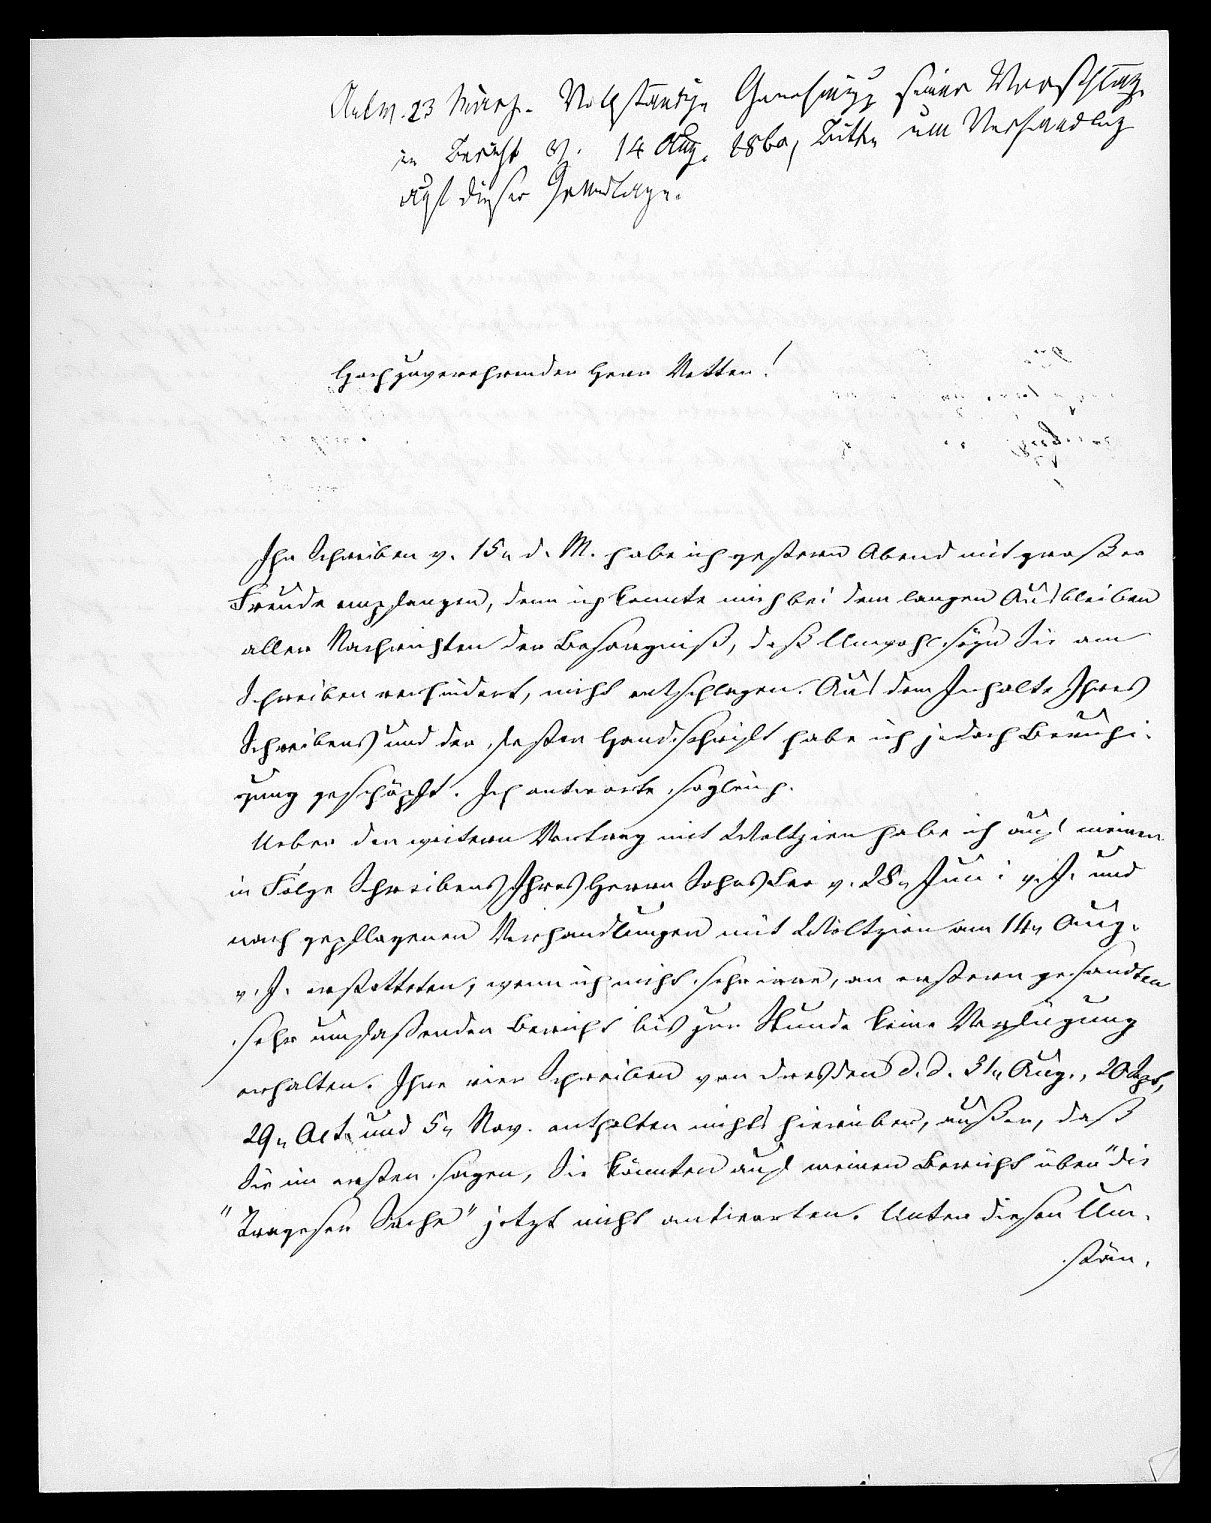 Antw. 23 März. Vollständige Genehmigg seiner Vorschläge
in Bericht v. 14 Aug. 1860, Bitte um Verhandlg
auf dieser Grundlage.
Hochzuverehrender Herr Vetter!
Ihr Schreiben v. 15n d. M. habe ich gestern Abend mit großer
Freude empfangen, denn ich konnte mich bei dem langen Ausbleiben
aller Nachrichten der Besorgniß, daß Unwohlseyn Sie am
Schreiben verhindert, nicht entschlagen. Aus dem Inhalte Ihres
Schreibens und der festen Handschrift habe ich jedoch Beruhi-
gung geschöpft. Ich antworte sogleich.
Ueber den weitern Vertrag mit Woltzien habe ich auf meinen
in Folge Schreibens Ihres Herrn Sohns v. 28n Juni v. J. und
nach gepflogenen Verhandlungen mit Woltzien am 14n Aug.
v. J. erstatteten, wenn ich nicht sehr irre, an erstern gesandten
sehr umfaßenden Bericht bis zur Stunde keine Verfügung
erhalten. Ihre vier Schreiben von Dresden d. d. 31n Aug., 20 Spt,
29n Oct. und 5n Nov. enthalten nichts hierüber, außer, daß
Sie im ersten sagen, Sie könnten auf meinen Bericht über "die
" Sache" jetzt nicht antworten. Unter diesen Um-
stän-